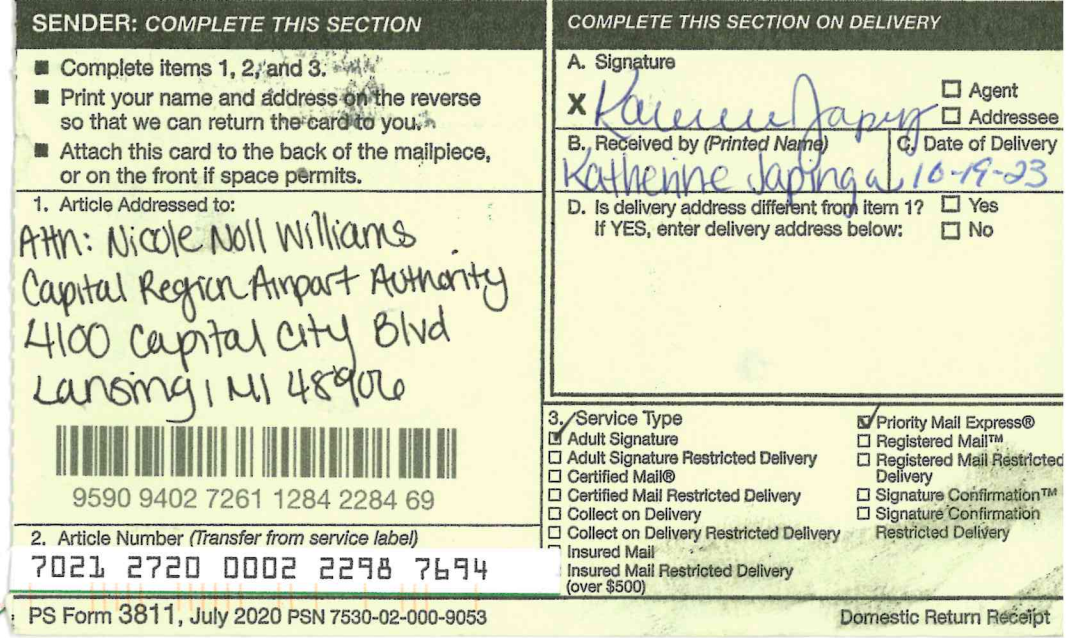 SENDER: COMPLETE THIS SECTION
■ Complete items 1, 2, and 3.
■ Print your name and address on the reverse
so that we can return the card to you.
■ Attach this card to the back of the mailpiece,
or on the front if space permits.
1. Article Addressed to:
Attn: Nicole Noll Williams
Capital Region Airport Authority
4100 Capital City Blvd
Lansing, MI 48906
9590 9402 7261 1284 2284 69
2. Article Number (Transfer from service label)
7021 2720 0002 2298 7694
COMPLETE THIS SECTION ON DELIVERY
A. Signature
X
☐ Agent
☐ Addressee
B. Received by (Printed Name) C. Date of Delivery
Katherine Japinga 10-19-23
D. Is delivery address different from item 1? ☐ Yes
If YES, enter delivery address below: ☐ No
3. Service Type
☑ Adult Signature
☐ Adult Signature Restricted Delivery
☐ Certified Mail®
☐ Certified Mail Restricted Delivery
☐ Collect on Delivery
☐ Collect on Delivery Restricted Delivery
Insured Mail
Insured Mail Restricted Delivery
(over $500)
☑ Priority Mail Express®
☐ Registered Mail™
☐ Registered Mail Restricted
Delivery
☐ Signature Confirmation™
☐ Signature Confirmation
Restricted Delivery
PS Form 3811, July 2020 PSN 7530-02-000-9053
Domestic Return Receipt